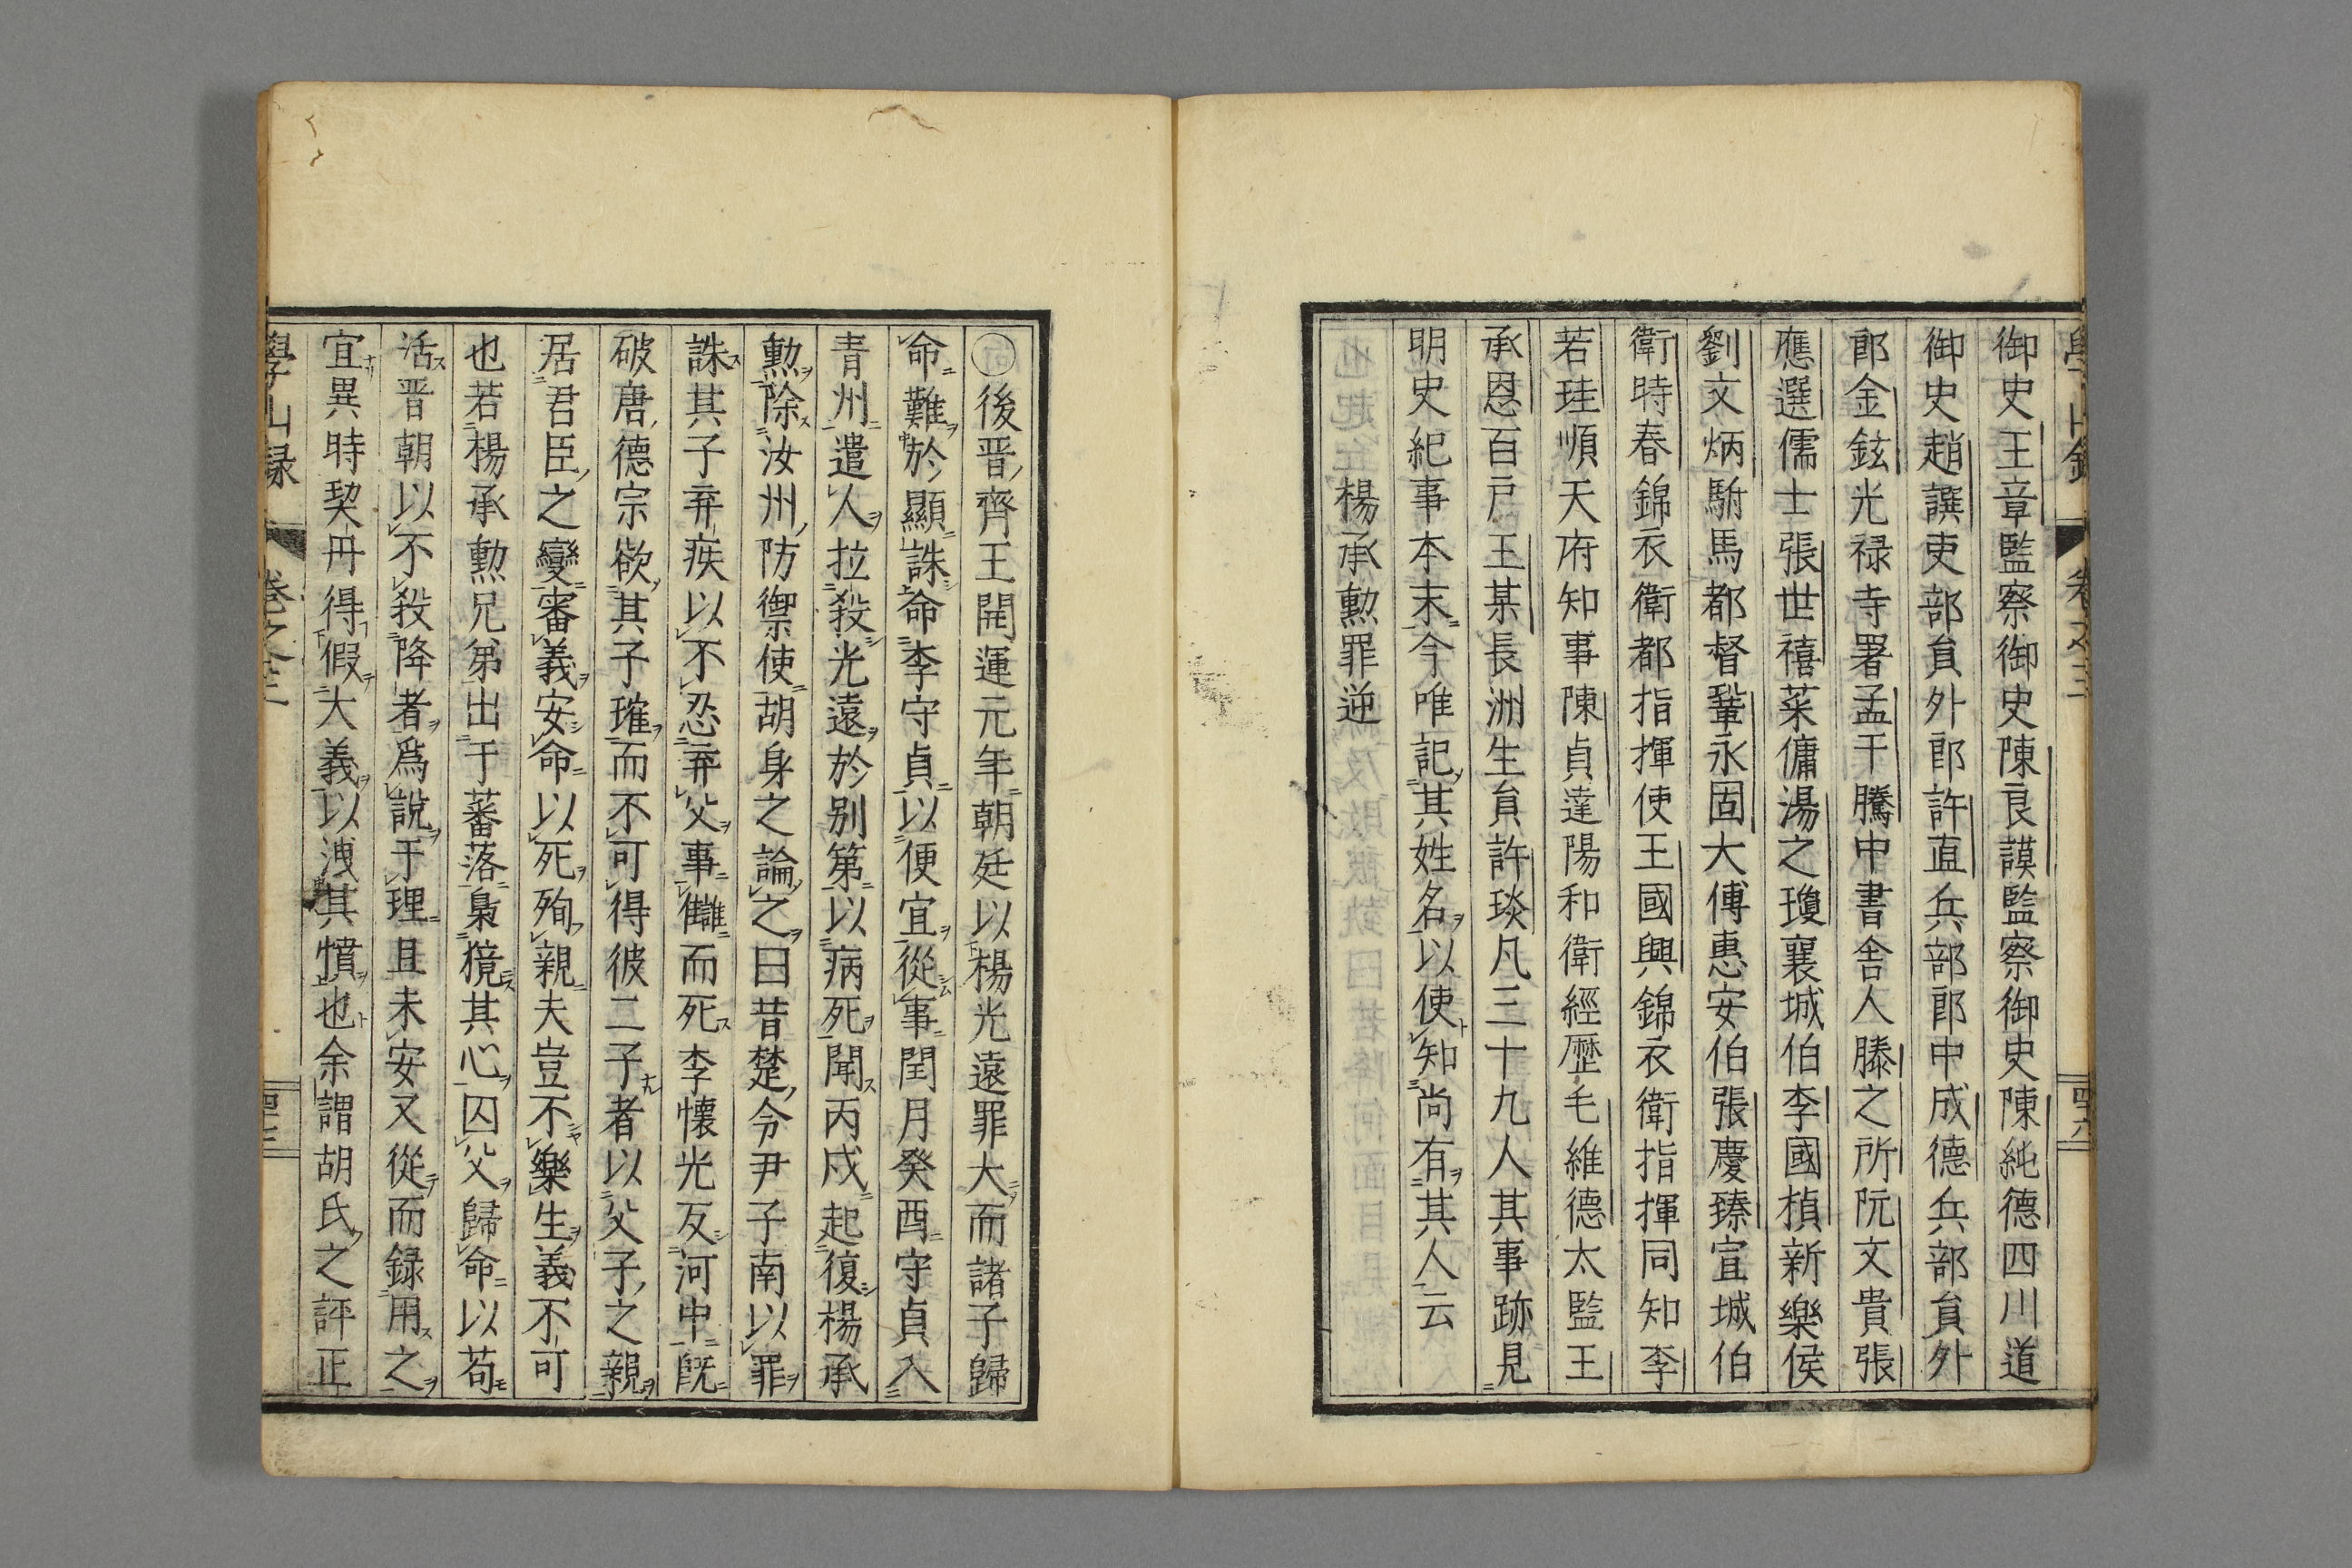 御史王章監察御史陳良謨監察御史陳純德四川道
御史趙譔吏部員外郎許直兵部郎中成德兵部員外
郎金鉉光禄寺署孟干騰中書舎人滕之所阮文貴張
應選儒士張世禧菜傭湯之瓊襄城伯李國楨新樂侯
劉文炳駙馬都督鞏永固大傅惠安伯張慶臻宣城伯
衛時春錦衣衛都指揮使王國興錦衣衛指揮同知李
若珪順天府知事陳貞達陽和衛經歷毛維德太監王
承恩百戸王某長洲生員許琰凡三十九人其事跡見
明史紀事本末今唯記其姓名以使知尚有其人云
楊承勲罪逆
〇後晋齊王開運元年朝廷以楊光遠罪大而諸子歸
命難於顯誅命李守貞以便宜從事閏月癸酉守貞入
青州遣人拉殺光遠於別第以病死聞丙戍起復楊承
勲除汝州防禦使胡身之論之曰昔楚令尹子南以罪
誅其子弃疾以不忍弃父事讎而死李懐光反河中既
破唐德宗欲其子璀而不可得彼二子者以父子之親
居君臣之變審義安命以死殉親夫豈不樂生義不可
也若楊承勲兄弟出于蕃落梟獍其心囚父歸命以苟
活晋朝以不殺降者為說于理且未安又從而録用之
宜異時契丹得假大義以洩其憤也余謂胡氏之評正
學山録
卷之三